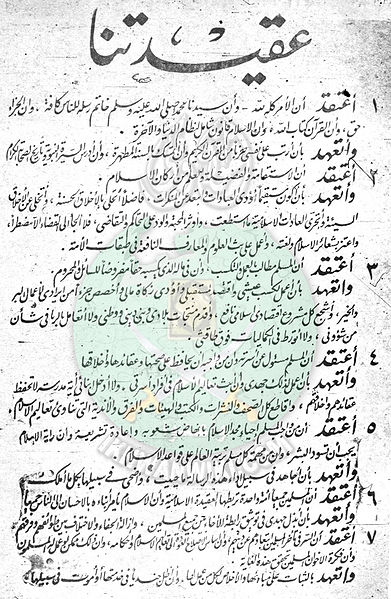 عقيدتنا
١ أعتقد أن الأمر كله لله، وأن سيدنا محمداً صلى الله عليه وسلم خاتم رسله للناس كافة، وأن الجزاء
حق، وأن القرآن كتاب الله، وأن الإسلام قانون شامل لنظام الدنيا والآخرة.
وأتعهد بأن أرتب على نفسي حزباً من القرآن الكريم وأن أتمسك بالسنة المطهرة، وأن أدرس السيرة النبوية وتاريخ الصحابة الكرام
٢ أعتقد أن الاستقامة والفضيلة والعلم من أركان الإسلام.
وأتعهد بأن أكون مستقيماً أؤدي العبادات وأبتعد عن المنكرات، فاضلاً أتحلى بالأخلاق الحسنة، وأتخلى عن الأخلاق
السيئة وأتحرى العادات الإسلامية ما استطعت، وأوثر المحبة والود على التحاكم والتقاضي، فلا ألجأ إلى القضاء إلا مضطراً،
وأعتز بشعائر الإسلام ولغته، وأعمل على بث العلوم والمعارف النافعة في طبقات الأمة.
٣ أعتقد أن المسلم مطالب بالعمل والتكسب، وأن في ماله الذي يكسبه حقاً مفروضاً للسائل والمحروم.
وأتعهد بأن أعمل لكسب عيشي وأقتصد لمستقبلي وأؤدي زكاة مالي وأخصص جزءاً من إيرادي لأعمال البر
والخير، وأشجع كل مشروع اقتصادي إسلامي نافع، وأقدم منتجات بلادي وبني ديني ووطني ولا أتعامل بالربا في شأن
من شؤوني، ولا أتورط في الكماليات فوق طاقتي.
٤ أعتقد أن المسلم مسئول عن أسرته وأن من واجبه أن يحافظ على صحتها وعقائدها وأخلاقها
وأتعهد بأن أعمل لذلك جهدي وأن أبث تعاليم الإسلام في أفراد أسرتي، ولا أدخل أبنائي أية مدرسة لا تحفظ
عقائدهم وأخلاقهم، وأقاطع كل الصحف والنشرات والكتب والهيئات والفرق والأندية التي تناوئ تعاليم الإسلام.
٥ أعتقد أن من واجب المسلم إحياء مجد الإسلام بإنهاض شعوبه وإعادة تشريعه وأن راية الإسلام
يجب أن تسود البشر، وأن من مهمة كل مسلم تربية العالم على قواعد الإسلام
وأتعهد بأن أجاهد في سبيل أداء هذه الرسالة ما حييت، وأضحي في سبيلها بكل ما أملك
٦ أعتقد أن المسلمين جميعاً أمة واحدة تربطها العقيدة الإسلامية وأن الإسلام يأمر أبناءه بالإحسان إلى الناس جميعاً
وأتعهد بأن أبذل جهدي في توثيق رابطة الإخاء بين جميع المسلمين، وإزالة الجفاء والاختلاف بين طوائفهم وفرقهم
٧ أعتقد أن السر في تأخر المسلمين ابتعادهم عن دينهم، وأن أساس الإصلاح العودة إلى تعاليم الإسلام وأحكامه، وأن ذلك ممكن لو عمل المسلمون
وأن فكرة الإخوان المسلمين تحقق هذه الغاية
وأتعهد بالثبات على مبادئها والإخلاص لكل من عمل لها، وأن أظل جندياً في خدمتها أو أموت في سبيلها